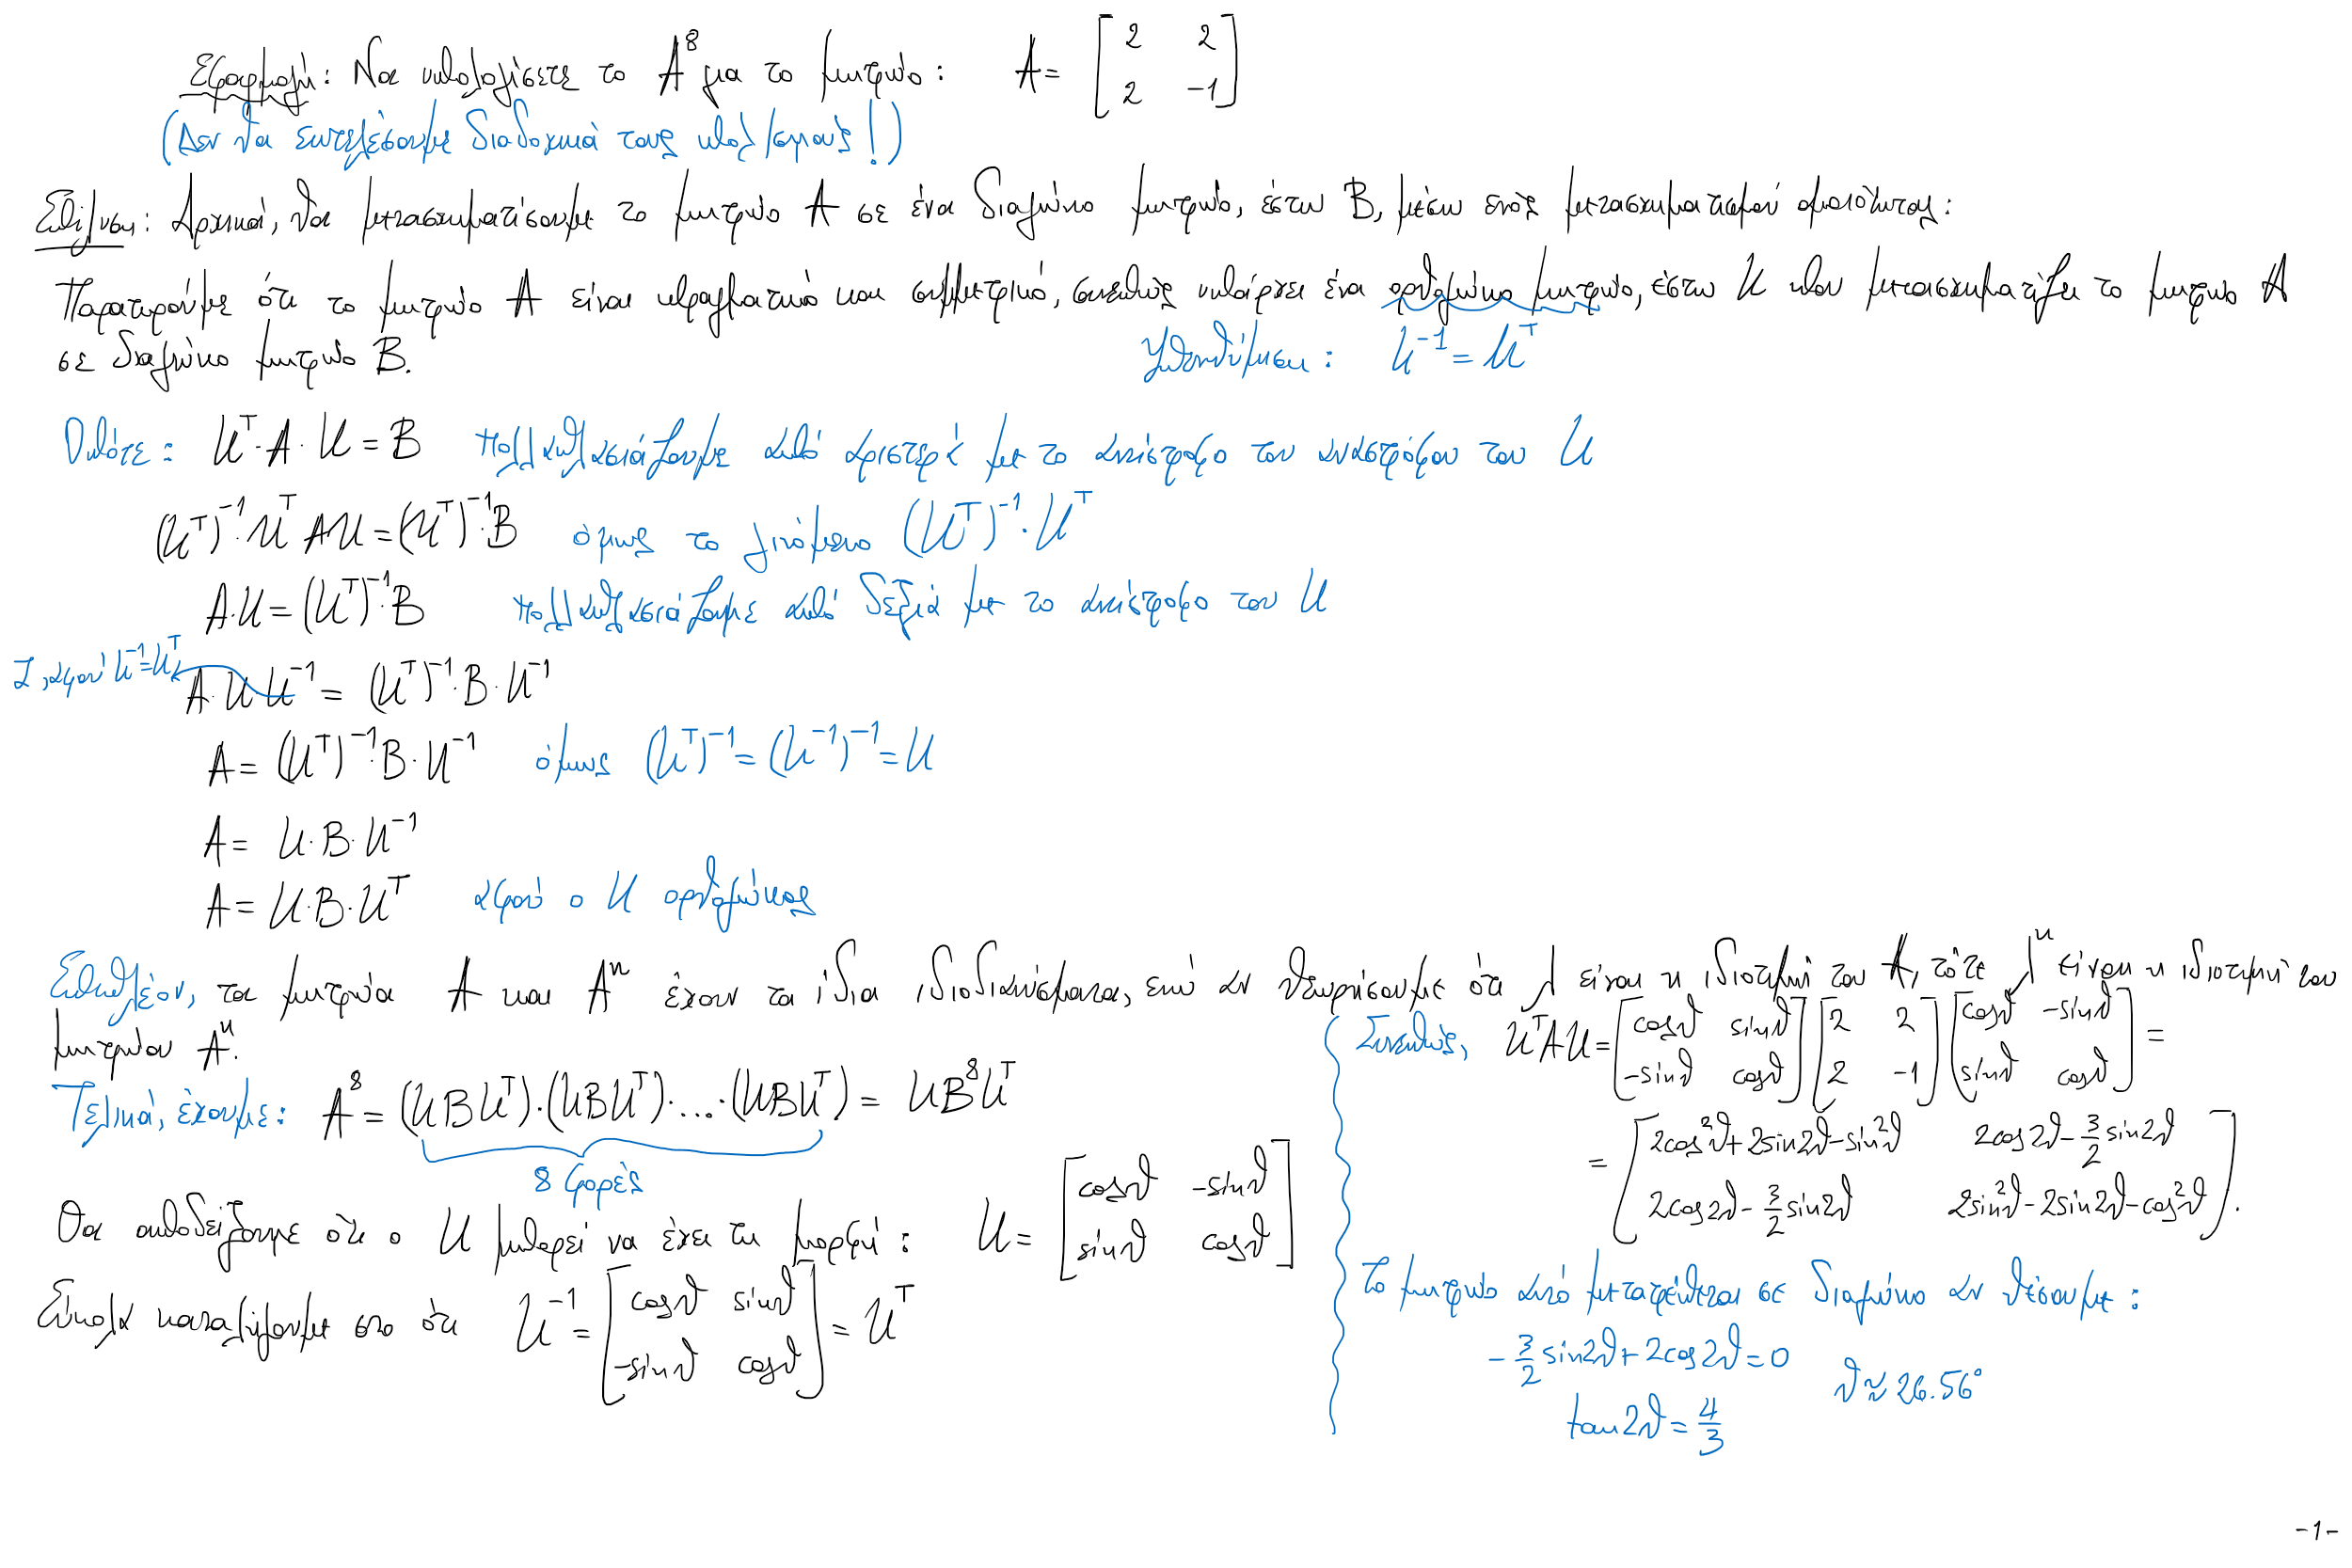 Εφαρμογή: Να υπολογίσετε το A⁸ για το μητρώο: A = [2 2; 2 -1]
(Δεν θα εκτελέσουμε διαδοχικά τους πολ/σμούς!)
Επίλυση: Αρχικά, θα μετασχηματίσουμε το μητρώο A σε ένα διαγώνιο μητρώο, έστω B, μέσω ενός μετασχηματισμού ομοιότητας:
Παρατηρούμε ότι το μητρώο A είναι πραγματικό και συμμετρικό, συνεπώς υπάρχει ένα ορθογώνιο μητρώο, έστω U που μετασχηματίζει το μητρώο A
σε διαγώνιο μητρώο B.
Υπενθύμιση: U⁻¹ = Uᵀ
Οπότε: Uᵀ·A·U = B πολλαπλασιάζουμε από αριστερά με το αντίστροφο του αναστρόφου του U
(Uᵀ)⁻¹·Uᵀ A U = (Uᵀ)⁻¹·B όμως το γινόμενο (Uᵀ)⁻¹·Uᵀ
A·U = (Uᵀ)⁻¹·B πολλαπλασιάζουμε από δεξιά με το αντίστροφο του U
I, αφού U⁻¹=Uᵀ
A·U U⁻¹ = (Uᵀ)⁻¹·B·U⁻¹
A = (Uᵀ)⁻¹·B·U⁻¹ όμως (Uᵀ)⁻¹ = (U⁻¹)⁻¹ = U
A = U·B·U⁻¹
A = U·B·Uᵀ αφού ο U ορθογώνιος
Επιπλέον, τα μητρώα A και Aⁿ έχουν τα ίδια ιδιοδιανύσματα, ενώ αν θεωρήσουμε ότι λ είναι η ιδιοτιμή του A, τότε λⁿ είναι η ιδιοτιμή του
μητρώου Aⁿ.
Τελικά, έχουμε: A⁸ = (UBUᵀ)·(UBUᵀ)·...·(UBUᵀ) = UB⁸Uᵀ
8 φορές
Θα αποδείξουμε ότι ο U μπορεί να έχει τη μορφή: U = [cosθ -sinθ; sinθ cosθ]
Εύκολα καταλήγουμε στο ότι U⁻¹ = [cosθ sinθ; -sinθ cosθ] = Uᵀ
Συνεπώς, UᵀAU = [cosθ sinθ; -sinθ cosθ] [2 2; 2 -1] [cosθ -sinθ; sinθ cosθ] =
= [2cos²θ+2sin2θ-sin²θ 2cos2θ-3/2 sin2θ; 2cos2θ-3/2 sin2θ 2sin²θ-2sin2θ-cos²θ].
Το μητρώο αυτό μετατρέπεται σε διαγώνιο αν θέσουμε:
-3/2 sin2θ + 2cos2θ = 0
tan2θ = 4/3 θ ≈ 26.56°
-1-